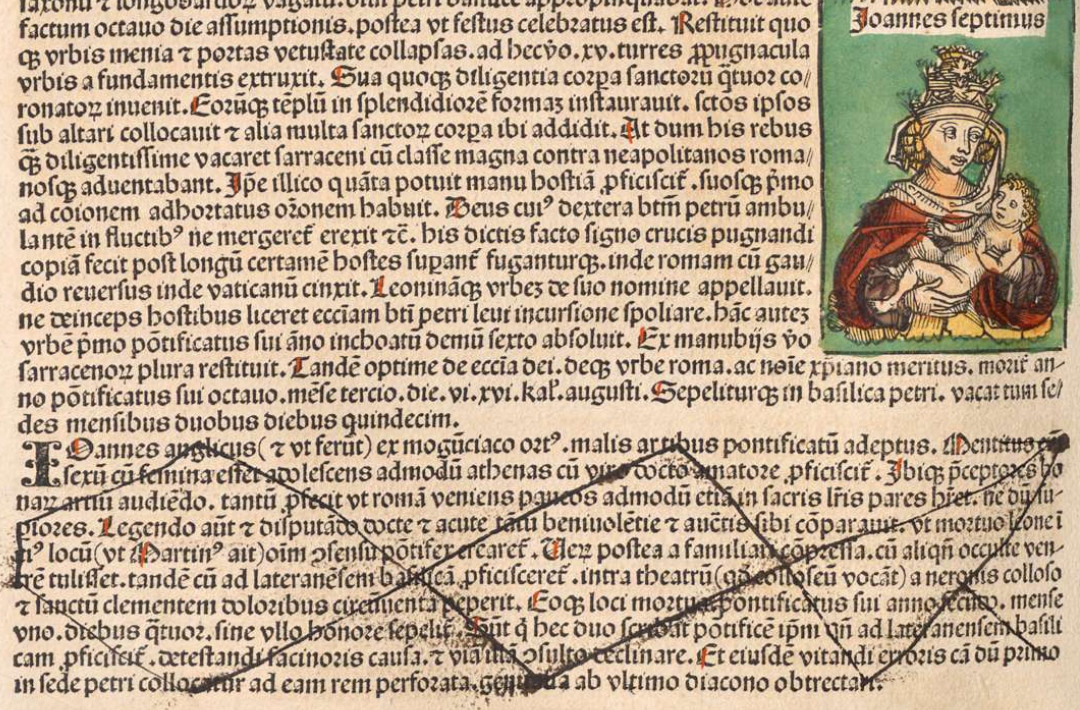 factum octauo die assumptionis. postea vt festus celebratus est. Restituit quo
qꝫ vrbis menia ⁊ portas vetustate collapsas. ad hec v̊o .xv. turres ꝓpugnacula
vrbis a fundamentis extruxit. Sua quoqꝫ diligentia corpa sanctorū q̄tuor co/
ronatoꝝ inuenit. Eorūqꝫ tēplū in splendidiorē formaꝫ instaurauit. sctōs ipsos
sub altari collocauit ⁊ alia multa sanctoꝝ corpa ibi addidit. At dum his rebus
q̄ꝫ diligentissime vacaret sarraceni cū classe magna contra neapolitanos roma/
nosqꝫ aduentabant. Ip̄e illico quāta potuit manu hostiā ꝓficiscit̄. suosqꝫ p̄mo
ad cōionem adhortatus or̄onem habuit. Deus cuiꝰ dextera btm̄ petrū ambu/
lantē in fluctibꝰ ne mergeret̄ erexit ⁊c̄. his dictis facto signo crucis pugnandi
copiā fecit post longū certamē hostes supant̄ fuganturqꝫ. inde romam cū gau/
dio reuersus inde vaticanū cinxit. Leonināqꝫ vrbeꝫ de suo nomine appellauit.
ne deinceps hostibus liceret ecc̄iam bt̄i petri leui incursione spoliare. hāc auteꝫ
vrbē p̄mo pōtificatus sui āno inchoatū demū sexto absoluit. Ex manubijs v̊o
sarracenoꝝ plura restituit. Tandē optime de ecc̄ia dei. deqꝫ vrbe roma. ac nōie xp̄iano meritus. morit̄ an-
no pōtificatus sui octauo. mēse tercio. die. vi. xvi. kal̄. augusti. Sepeliturqꝫ in basilica petri. vacat tum se/
des mensibus duobus diebus quindecim.
IOannes anglicus (⁊ vt ferūt) ex mogūciaco ortꝰ. malis artibus pontificatū adeptus. Mentitus eñ
sexū cū femina esset adolescens admodū athenas cū viro docto amatore ꝓficiscit̄. Ibiqꝫ p̄ceptores bo
naꝝ artiū audiēdo. tantū ꝓfecit vt romā veniens paucos admodū etiā in sacris lr̄is pares hr̄et. ne dū su-
piores. Legendo aūt ⁊ disputādo docte ⁊ acute tātū beniuolētie ⁊ auctis sibi cōparauit. vt mortuo leone ī
eiꝰ locū (vt Martinꝰ ait) oīm ↄsensu pōtifex crearet̄. Veꝝ postea a familiari cōpressa. cū aliqn̄ occulte ven-
trē tulisset. tandē cū ad lateranēsem basilicā ꝓficisceret̄. intra theatrū (qd̄ colloseū vocāt) a neronis colloso
⁊ sanctū clementem doloribus circūuenta peperit. Eoqꝫ loci mortua. pontificatus sui anno secūdo. mense
vno. diebus q̄tuor. sine vllo honore sepelit̄. Sūt q̄ hec duo scribāt pōtificē ip̄m qn̄ ad lateranensem basili
cam ꝓficiscit̄. detestandi facinoris causa. ⁊ viā illā ↄsulto declinare. Et eiusdē vitandi erroris cā dū primo
in sede petri collocatur ad eam rem perforata. genitalia ab vltimo diacono obtrectari.
Joannes septimus